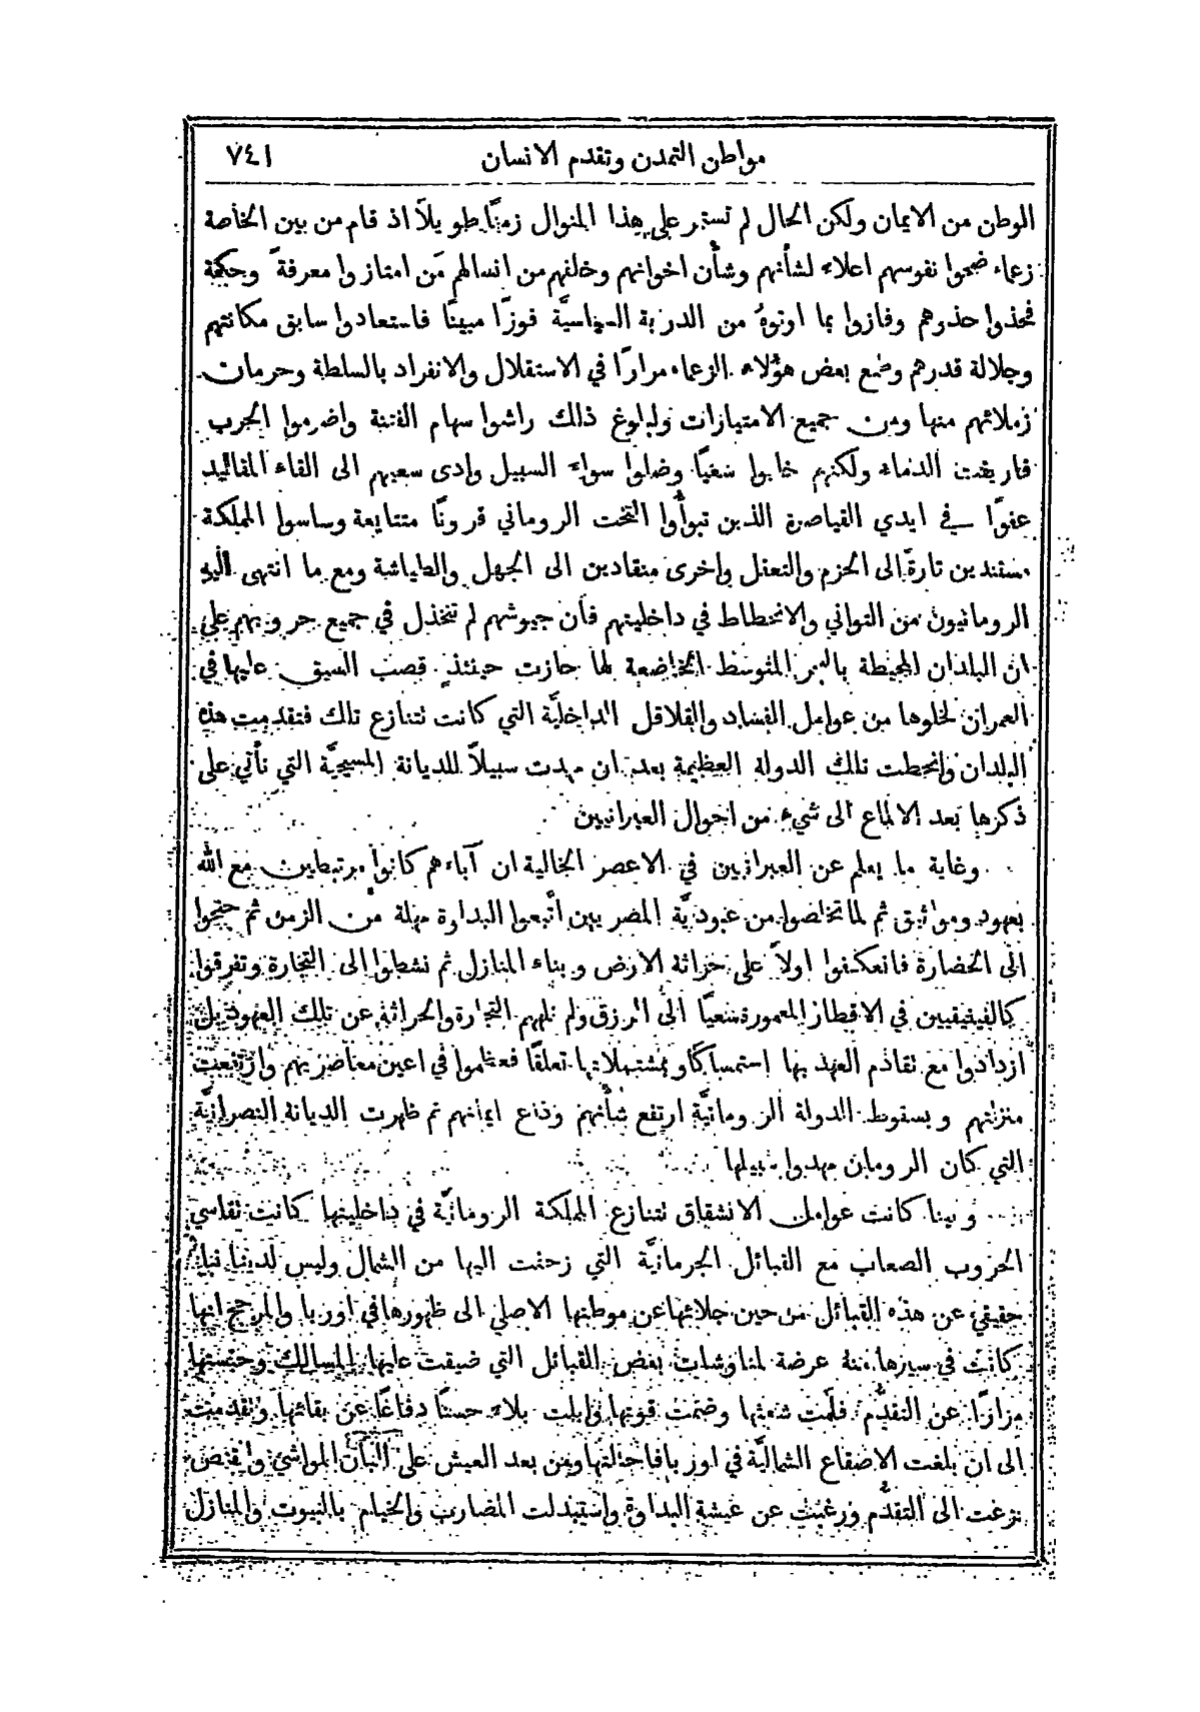 مواطن التمدن وتقدم الانسان ٧٤١
الوطن من الايمان ولكن الحال لم تستمر على هذا المنوال زمنًا طويلاً اذ قام من بين الخاصة
زعماء ضحوا نفوسهم اعلاء لشأنهم وشأن اخوانهم وخلفهم من انسالهم مَن امتازوا معرفةً وحكمة
فحذوا حذوهم وفازوا بما اوتوهُ من الدربة السياسيَّة فوزًا مبينًا فاستعادوا سابق مكانتهم
وجلالة قدرهم وطمع بعض هؤلاء الزعماء مرارًا في الاستقلال والانفراد بالسلطة وحرمان
زملائهم منها ومن جميع الامتيازات ولبلوغ ذلك راشوا سهام الفتنة واضرموا الحرب
فاريقت الدماء ولكنهم خابوا سعيًا وضلوا سواء السبيل وادى سعيهم الى القاء المقاليد
عفوًا في ايدي القياصرة الذين تبوأُوا التخت الروماني قرونًا متتابعة وساسوا المملكة
مستندين تارةً الى الحزم والتعقل واخرى منقادين الى الجهل والطياشة ومع ما انتهى اليهِ
الرومانيون من التواني والانحطاط في داخليتهم فان جيوشهم لم تنخذل في جميع حروبهم على
ان البلدان المحيطة بالبحر المتوسط الخاضعة لها حازت حينئذٍ قصب السبق عليها في
العمران لخلوها من عوامل الفساد والقلاقل الداخليَّة التي كانت تتنازع تلك فتقدمت هذه
البلدان وانحطت تلك الدولة العظيمة بعد ان مهدت سبيلاً للديانة المسيحيَّة التي نأتي على
ذكرها بعد الالماع الى شيء من احوال العبرانيين
وغاية ما يعلم عن العبرانيين في الاعصر الخالية ان آباءهم كانوا مرتبطين مع الله
بعهود ومواثيق ثم لما تخلصوا من عبوديَّة المصريين اتَّبعوا البداوة مهلة من الزمن ثم جنحوا
الى الحضارة فانعكفوا اولاً على حراثة الارض وبناء المنازل ثم نشطوا الى التجارة وتفرقوا
كالفينيقيين في الاقطار المعمورة سعيًا الى الرزق ولم تلههم التجارة والحراثة عن تلك العهود بل
ازدادوا مع تقادم العهد بها استمساكًا وبمشتملاتها تعلقًا فعظموا في اعين معاصريهم وارتفعت
منزلتهم وبسقوط الدولة الرومانيَّة ارتفع شأنهم وذاع ايمانهم ثم ظهرت الديانة النصرانيَّة
التي كان الرومان مهدوا سبيلها
وبينا كانت عوامل الانشقاق تتنازع المملكة الرومانيَّة في داخليتها كانت تقاسي
الحروب الصعاب مع القبائل الجرمانيَّة التي زحفت اليها من الشمال وليس لدينا نباء
حقيقي عن هذه القبائل من حين جلائها عن موطنها الاصلي الى ظهورها في اوربا والمرجح انها
كانت في سيرها عرضة لمناوشات بعض القبائل التي ضيقت عليها المسالك وحبستها
مرارًا عن التقدُّم فلمَّت شعثها وضمت قوتها وابلت بلاء حسنًا دفاعًا عن بقائها وتقدمت
الى ان بلغت الاصقاع الشماليَّة في اوربا فاحتلتها ومن بعد العيش على البان المواشي والقنص
نزعت الى التقدُّم ورغبت عن عيشة البداوة واستبدلت المضارب والخيام بالبيوت والمنازل